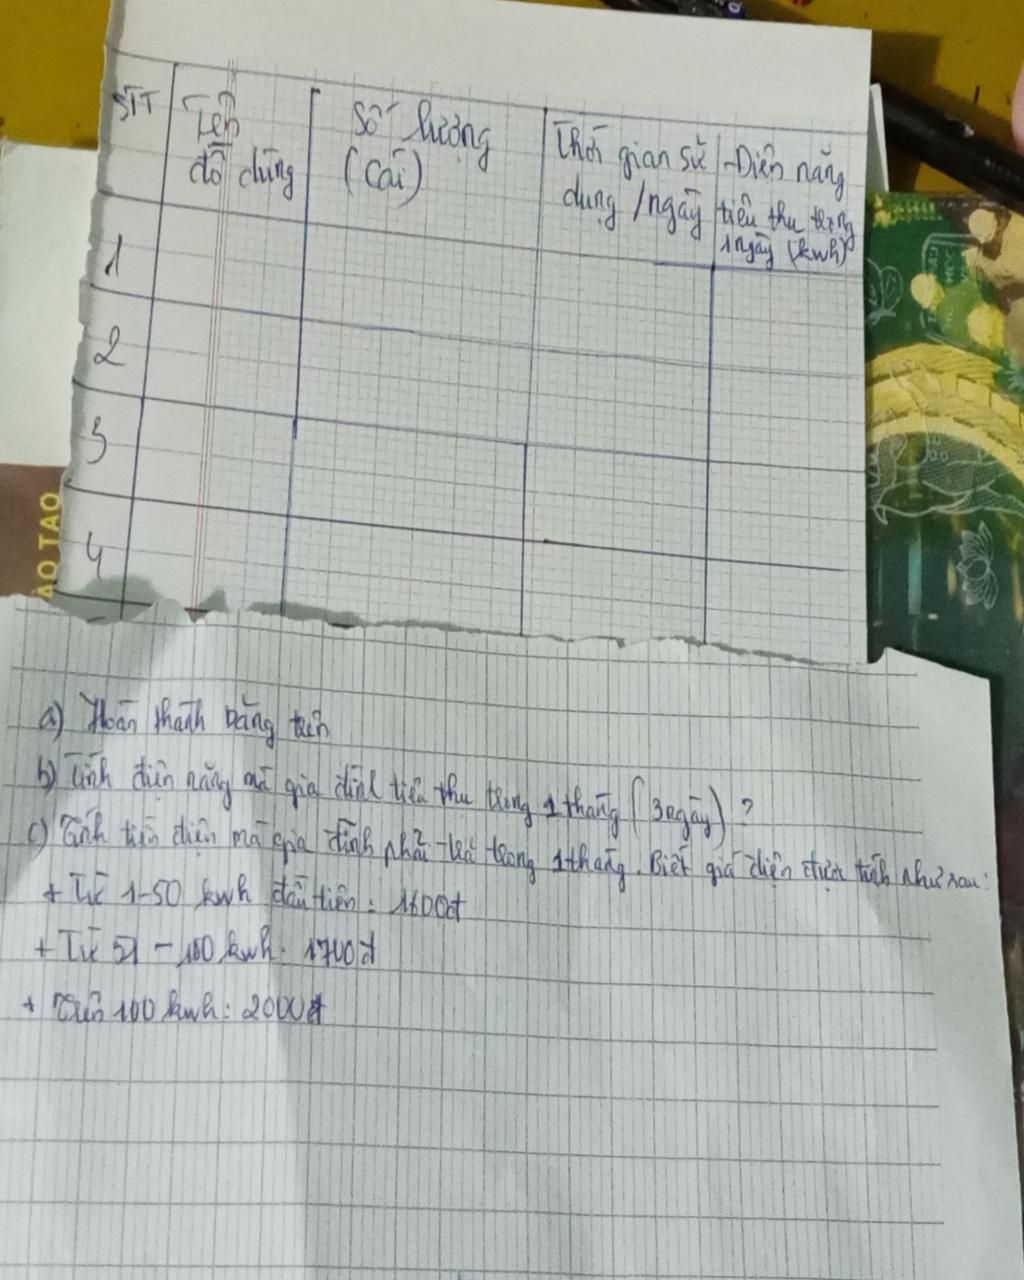 STT Tên đồ dùng Số lượng (Cái) Thời gian sử dụng /ngày -Điện năng tiêu thụ trong 1ngày (kwh)
1
2
3
4
ẠO TẠO
a) Hoàn thành bảng trên
b) Tính điện năng mà gia đình tiêu thụ trong 1 tháng (30ngày) ?
c) Tính tiền điện mà gia đình phải trả trong 1tháng. Biết giá điện được tính như sau:
+ Từ 1-50 kwh đầu tiên: 1600đ
+ Từ 51 - 100 kwh: 1700đ
+ Trên 100 kwh: 2000đ